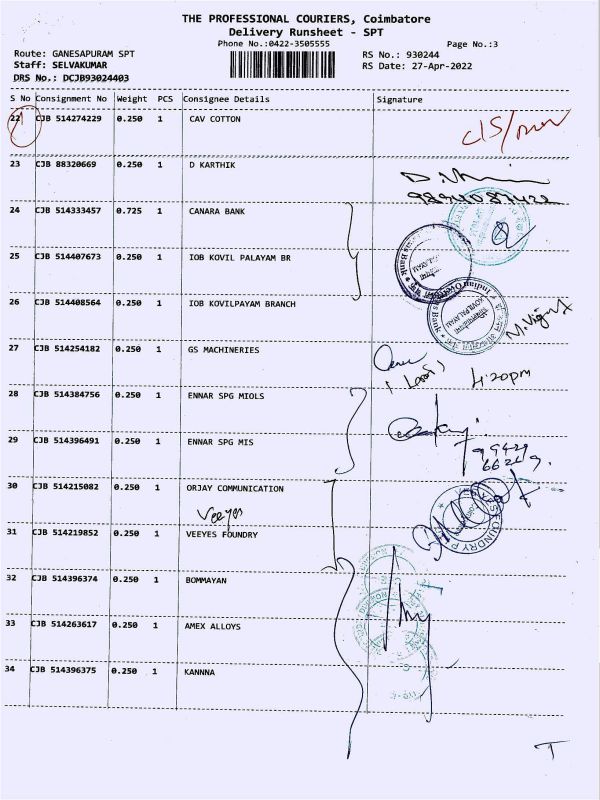 THE PROFESSIONAL COURIERS, Coimbatore
Delivery Runsheet - SPT
Phone No.:0422-3505555 Page No.:3
Route: GANESAPURAM SPT RS No.: 930244
Staff: SELVAKUMAR RS Date: 27-Apr-2022
DRS No.: DCJB93024403
S No Consignment No Weight PCS Consignee Details Signature
22 CJB 514274229 0.250 1 CAV COTTON
23 CJB 88320669 0.250 1 D KARTHIK
24 CJB 514333457 0.725 1 CANARA BANK
25 CJB 514407673 0.250 1 IOB KOVIL PALAYAM BR
26 CJB 514408564 0.250 1 IOB KOVILPAYAM BRANCH
27 CJB 514254182 0.250 1 GS MACHINERIES
4:20pm
28 CJB 514384756 0.250 1 ENNAR SPG MIOLS
29 CJB 514396491 0.250 1 ENNAR SPG MIS
30 CJB 514215082 0.250 1 ORJAY COMMUNICATION
Veeyes
31 CJB 514219852 0.250 1 VEEYES FOUNDRY
32 CJB 514396374 0.250 1 BOMMAYAN
33 CJB 514263617 0.250 1 AMEX ALLOYS
34 CJB 514396375 0.250 1 KANNNA